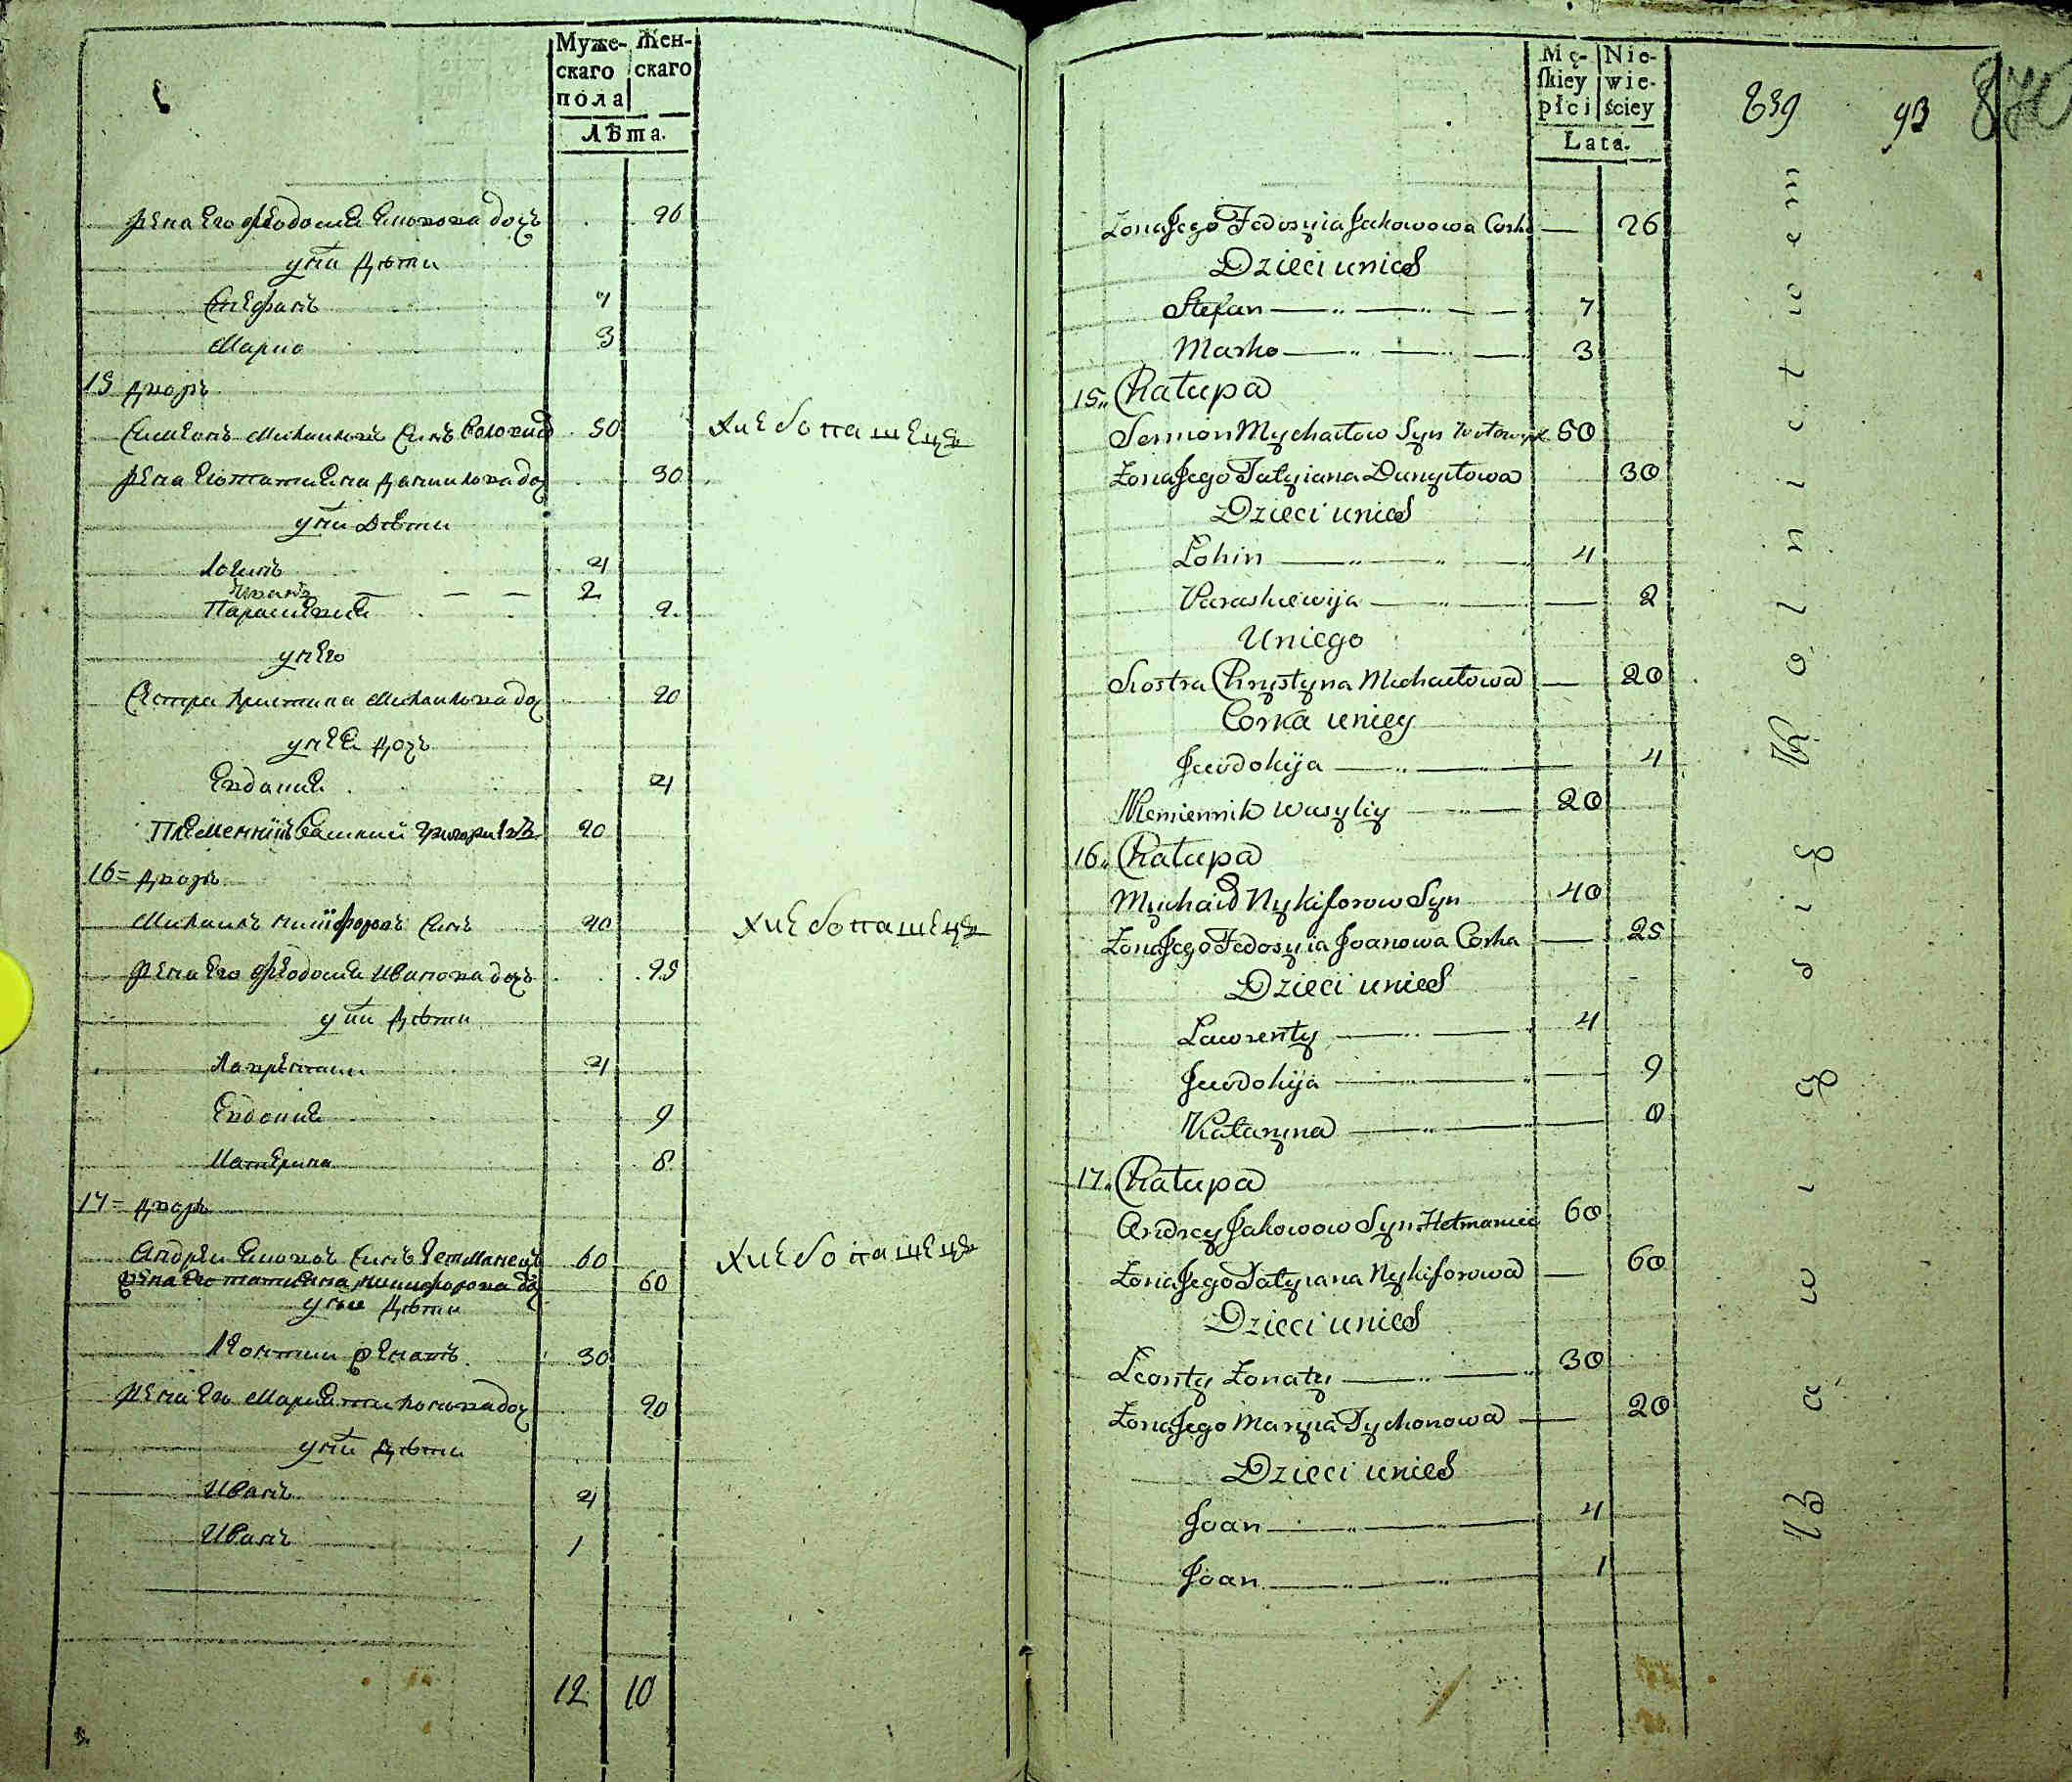 Муже-
скаго
пола
Жен-
скаго
Лѣта.
Жена Его Феодосия Яковова дочь 26
у них Дѣти
Стефанъ 7
Марко 3
15 дворъ
Симеонъ Михаиловъ Синъ 50 хлебопашецъ
Жена Его Татияна Даниилова доч 30
у них Дѣти
Логинъ 4
Иванъ 2
Параскевия 2
у него
Сестра Христина Михаилова доч 20
у нея дочь
Евдокия 4
Племенник Василий Григориевъ 20
16 = дворъ
Михаилъ Никифоровъ Синъ 40 хлебопашецъ
Жена Его Феодосия Иванова дочь 25
у них Дѣти
Лаврентий 4
Евдокия 9
Катерина 8
17 = дворъ
Андрей Яковов Синъ Гетманецъ 60 хлебопашецъ
Жена Его Татияна Никифорова доч 60
у них Дѣти
Леонтий женатъ 30
Жена Его Мария Тихонова доч 20
у них Дѣти
Иванъ 4
Иванъ 1
12 10
Mę-
ſkiey
płci
Nie-
wie-
ściey
Lata.
839 93
Żona Jego Fedosyia Jakowowa Corka 26
Dzieci unich
Stefan 7
Marko 3
15,, Chałupa
Semion Mychałow Syn 50
Żona Jego Tatyiana Danyłowa 30
Dzieci unich
Łohin 4
Paraskiewija 2
Uniego
Siostra Chrystyna Michałowa 20
Corka uniey
Jewdokija 4
Plemiennik Wasyliy 20
16,, Chałupa
Mychaił Nykiforow Syn 40
Żona Jego Fedosyia Joanowa Corka 25
Dzieci unich
Lawrenty 4
Jewdokija 9
Katarzyna 8
17,, Chałupa
Andrey Jakowow Syn Hetmaniec 60
Żona Jego Tatyiana Nykiforowa 60
Dzieci unich
Leonty Żonaty 30
Żona Jego Maryia Tychonowa 20
Dzieci unich
Joan 4
Joan 1
Bawią się Rólnictwem